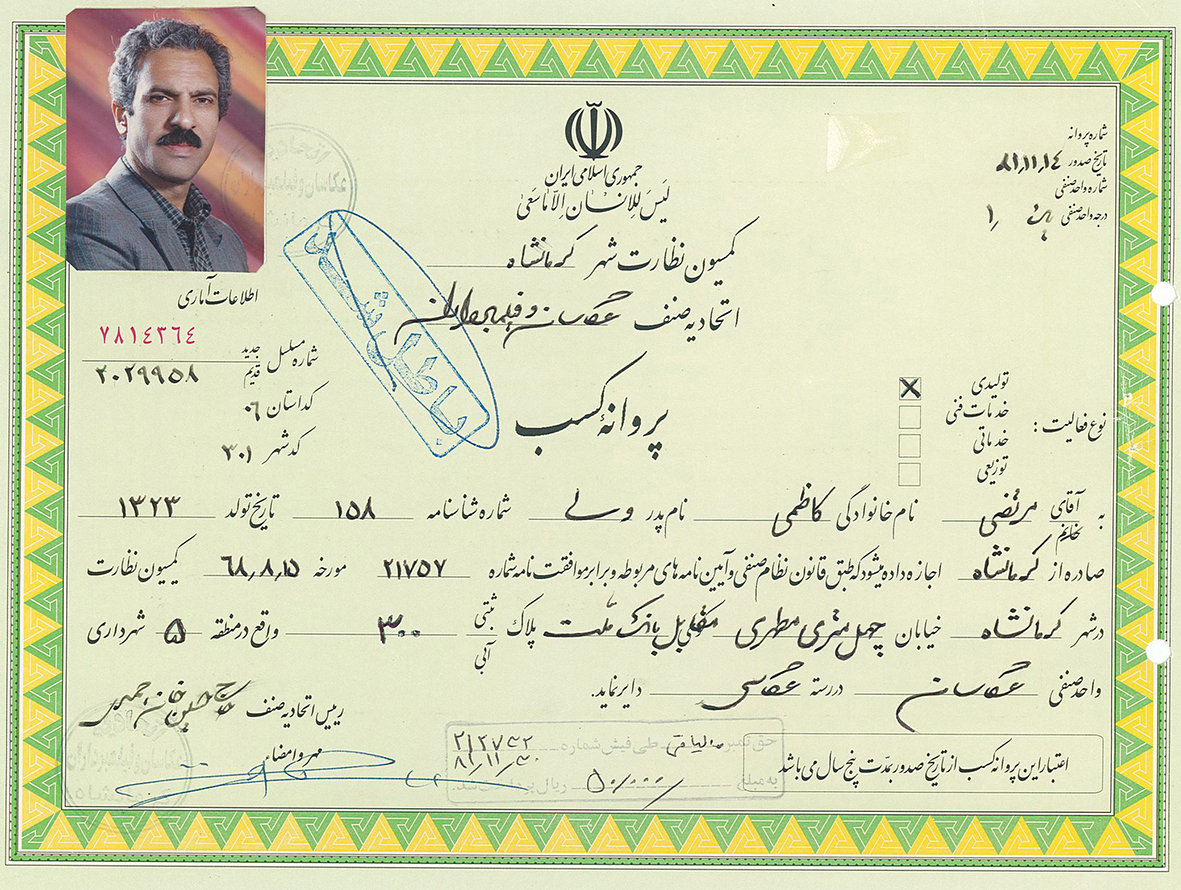 شماره پروانه
تاریخ صدور ۸۱،۱۱،۱٤
شماره واحد صنفی
درجه واحد صنفی ۱
جمهوری اسلامی ایران
لَیسَ لِلاِنسان اِلّا ماسَعیٰ
کمیسیون نظارت شهر کرمانشاه
اتحادیه صنف عکاسان و فیلمبرداران
پروانهٔ کسب
باطل شد
اطلاعات آماری
۷۸۱٤۳٦٤
شماره مسلسل جدید
قدیم ۲۰۲۹۹۵۸
کد استان ۰۶
کد شهر ۳۰۱
نوع فعالیت :
تولیدی X
خدمات فنی
خدماتی
توزیعی
به آقای / خانم مرتضی نام خانوادگی کاظمی نام پدر ولی شماره شناسنامه ۱۵۸ تاریخ تولد ۱۳۲۳
صادره از کرمانشاه اجازه داده میشود که طبق قانون نظام صنفی و آیین نامه های مربوطه و برابر موافقت نامه شماره ۲۱۷۵۷ مورخه ٦۸،۸،۱۵ کمیسیون نظارت
در شهر کرمانشاه خیابان چهل متری مطهری مقابل بانک ملت پلاک ثبتی / آبی ۳۰۰ واقع در منطقه ۵ شهرداری
واحد صنفی عکاسان در رسته عکاسی دایر نماید.
رییس اتحادیه صنف حاج حسین خان
مهر و امضاء
طی فیش شماره ۲۱۲۷۴۲
به مبلغ ۵۰/۰۰۰ ریال پرداخت شد.
اعتبار این پروانه کسب از تاریخ صدور بمدّت پنج سال می باشد